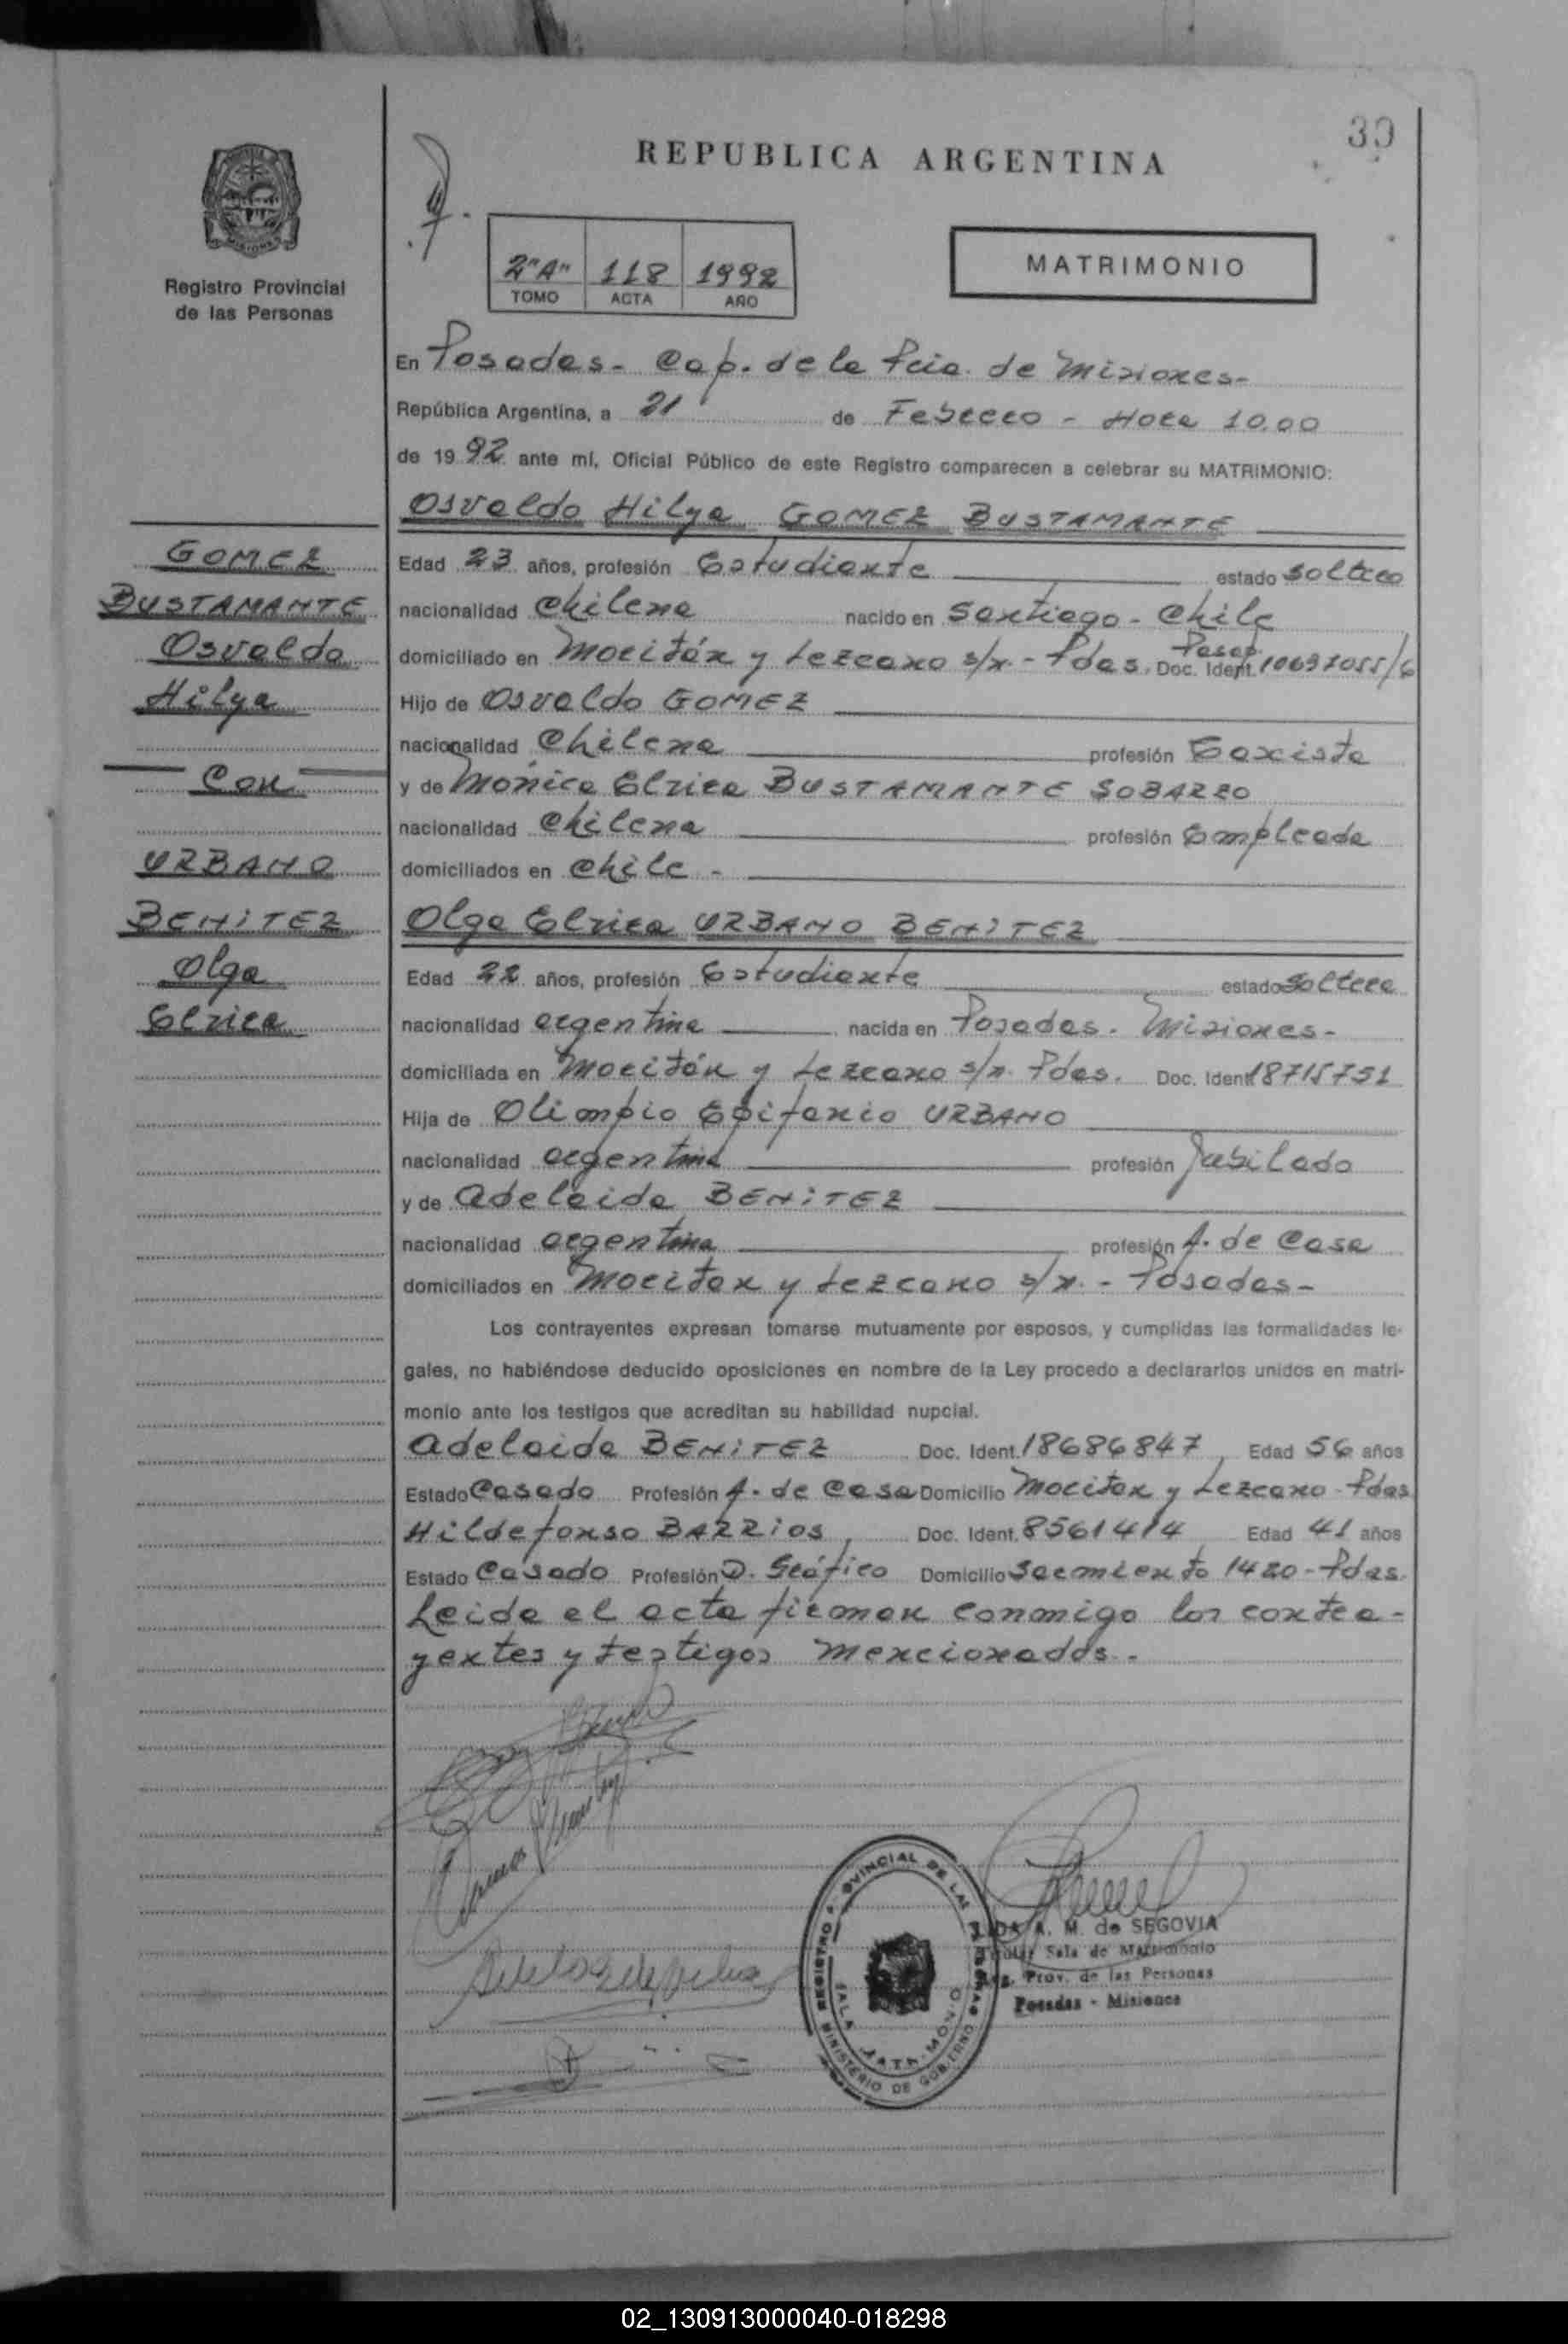 39
REPUBLICA ARGENTINA
Registro Provincial
de las Personas
2"A" 118 1992
TOMO ACTA AÑO
MATRIMONIO
En Posadas- Cap. de la Pcia. de Misiones-
República Argentina, a 21 de Febrero - Hora 10.00
de 1992 ante mí, Oficial Público de este Registro comparecen a celebrar su MATRIMONIO:
Osvaldo Hilya GOMEZ BUSTAMANTE
GOMEZ
BUSTAMANTE
Osvaldo
Hilya
Con
URBANO
BENITEZ
Olga
Elzira
Edad 23 años, profesión Estudiante estado soltero
nacionalidad Chilena nacido en Santiago - Chile
domiciliado en Moritán y Lezcano s/n. - Pdas. Doc. Ident. Pasap. 10697055/6
Hijo de Osvaldo GOMEZ
nacionalidad Chilena profesión
y de Monica Elzira BUSTAMANTE SOBARZO
nacionalidad Chilena profesión Empleada
domiciliados en Chile -
Olga Elzira URBANO BENITEZ
Edad 22 años, profesión Estudiante estado soltera
nacionalidad argentina nacida en Posadas. Misiones-
domiciliada en Moritán y Lezcano s/n. Pdas. Doc. Ident. 18715751
Hija de Olimpio Epifanio URBANO
nacionalidad argentina profesión Jubilado
y de Adelaida BENITEZ
nacionalidad argentina profesión A. de Casa
domiciliados en Moritan y Lezcano s/n. - Posadas-
Los contrayentes expresan tomarse mutuamente por esposos, y cumplidas las formalidades le-
gales, no habiéndose deducido oposiciones en nombre de la Ley procedo a declararlos unidos en matri-
monio ante los testigos que acreditan su habilidad nupcial.
Adelaida BENITEZ Doc. Ident. 18686847 Edad 56 años
Estado Casado Profesión A. de Casa Domicilio Moritan y Lezcano - Pdas
Hildefonso BARRIOS, Doc. Ident. 8561414 Edad 41 años
Estado Casado Profesión D. Gráfico Domicilio Sarmiento 1420 - Pdas.
Leida el acta firman conmigo los contra-
yentes y testigos mencionados.
REGISTRO PROVINCIAL DE LAS PERSONAS
MINISTERIO DE GOBIERNO
SALA MATRIMONIO
A. M. de SEGOVIA
Sala de Matrimonio
Reg. Prov. de las Personas
Posadas - Misiones
02_130913000040-018298